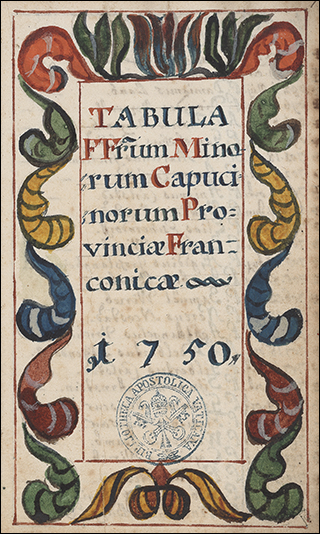 TABULA
FFrũm Mino-
rum Capuci-
norum Pro-
vinciæ Fran-
conicæ
1750.
BIBLIOTHECA APOSTOLICA VATICANA